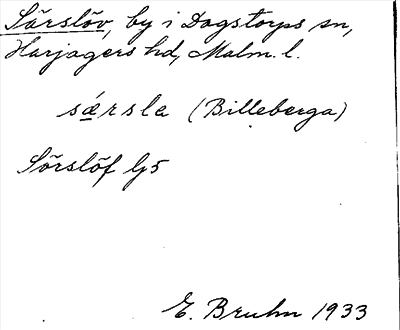 Särslöv, by i Dagstorps sn,
Harjagers hd, Malm. l.
sǽrsla (Billeberga)
Sörslöf G5
E. Bruhn 1933